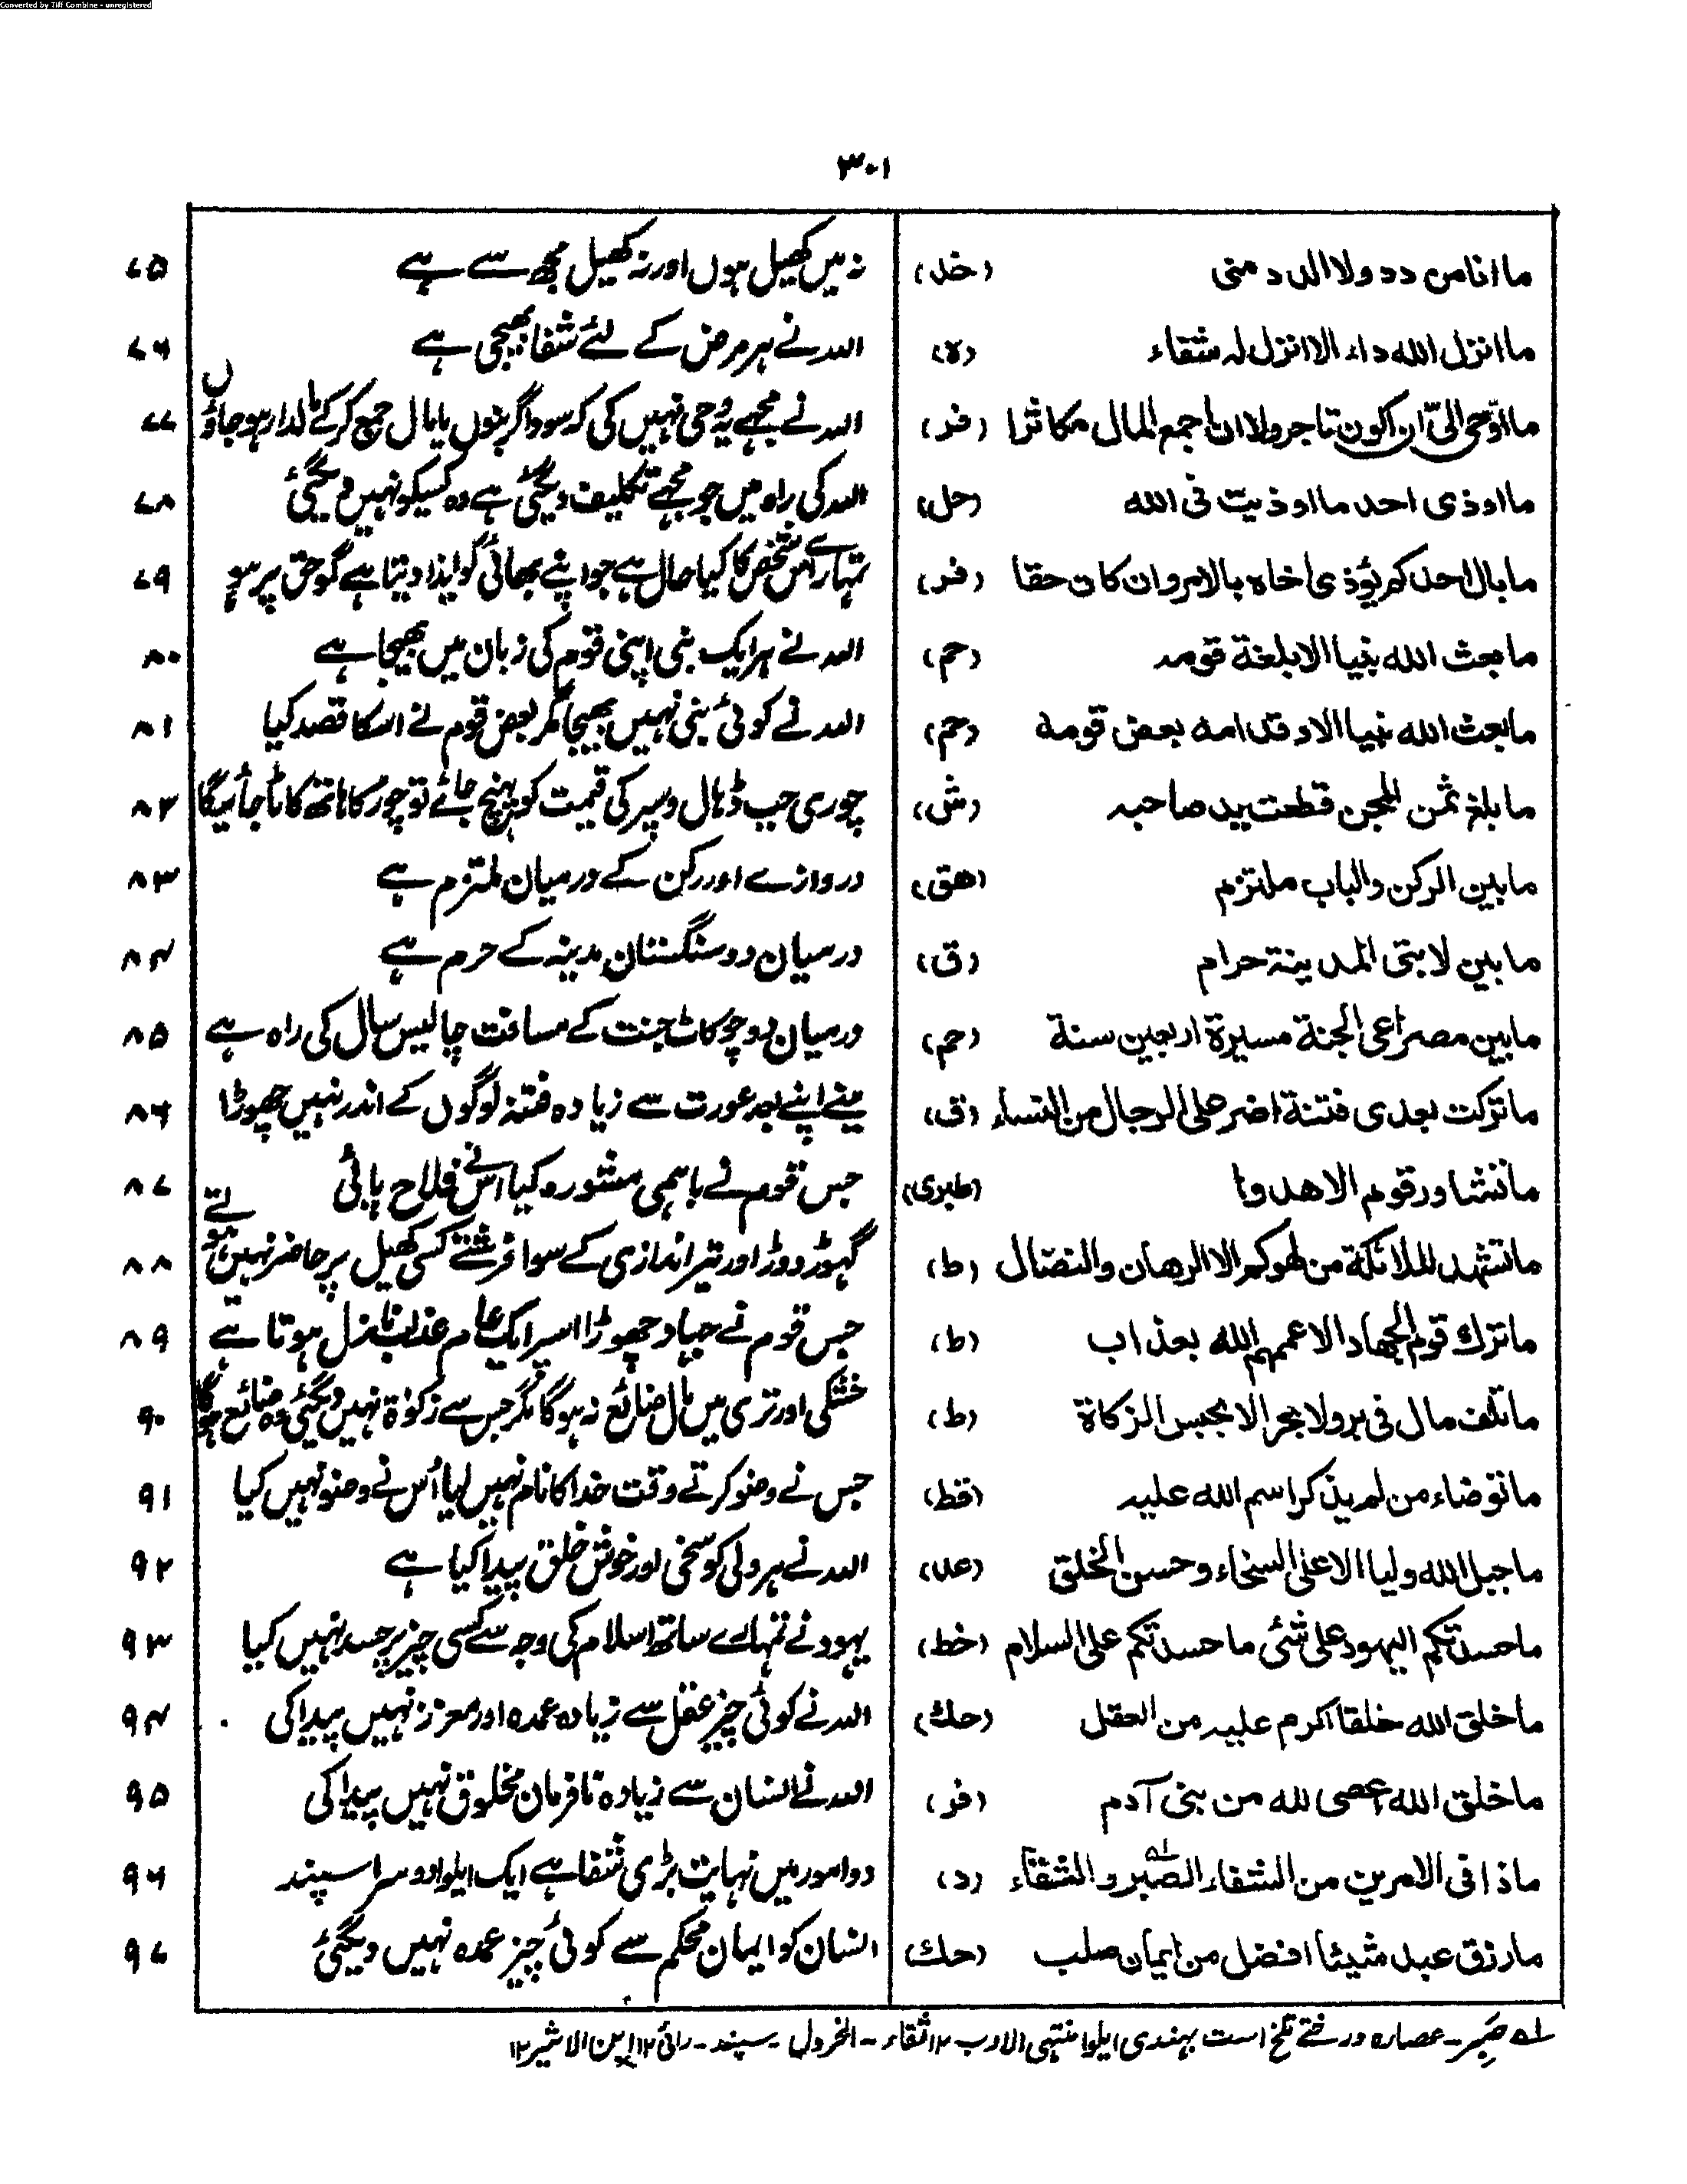 Converted by Tiff Combine - unregistered
۳۰۱
ما انا من دد ولا الدد منی (خد) نہ میں کھیل ہوں اور نہ کھیل مجھ سے ہے ۷۵
ما انزل الله داء الا انزل لہ شفاء (ہ) اللہ نے ہر مرض کے لئے شفا بھیجی ہے ۷۶
ما اوحی الیّ ان اکون تاجرا ولا ان اجمع المال مکاثرا (فر) اللہ نے مجھے یہ وحی نہیں کی کہ سوداگر بنوں یا مال جمع کر کے مالدار ہو جاؤں ۷۷
ما اوذی احد ما اوذیت فی الله (حل) اللہ کی راہ میں جو مجھے تکلیف دیگئی ہے وہ کسیکو نہیں دیگئی ۷۸
ما بال احدکم یؤذی اخاہ بالامر وان کان حقا (فر) تمہارے اس شخص کا کیا حال ہے جو اپنے بھائی کو ایذا دیتا ہے گو حق پر ہو ۷۹
ما بعث الله نبیا الا بلغة قومہ (حم) اللہ نے ہر ایک نبی اپنی قوم کی زبان میں بھیجا ہے ۸۰
ما بعث الله نبیا الا وقد امه بعض قومه (حم) اللہ نے کوئی نبی نہیں بھیجا مگر بعض قوم نے اسکا قصد کیا ۸۱
ما بلغ ثمن المجن قطعت ید صاحبہ (ش) چوری جب ڈہال و سپر کی قیمت کو پہنچ جائے تو چور کا ہاتھ کاٹا جائیگا ۸۲
ما بین الرکن والباب ملتزم (هق) دروازے اور رکن کے درمیان ملتزم ہے ۸۳
ما بین لابتی المدینة حرام (ق) درمیان دو سنگستان مدینہ کے حرم ہے ۸۴
ما بین مصراعی الجنة مسیرة اربعین سنة (حم) درمیان دو چوکاٹ جنت کے مسافت چالیس سال کی راہ ہے ۸۵
ما ترکت بعدی فتنة اضر علی الرجال من النساء (ق) مینے اپنے بعد عورت سے زیادہ فتنہ لوگوں کے اندر نہیں چھوڑا ۸۶
ما تشاور قوم الا هدوا (طبری) جس قوم نے باہمی مشورہ کیا اس نے فلاح پائی ۸۷
ما تشهد الملائکة من لهوکم الا الرهان والنضال (ط) گہوڑ دوڑ اور تیر اندازی کے سوا فرشتے کسی کھیل پر حاضر نہیں ہوتے ۸۸
ما ترك قوم الجهاد الا عمهم الله بعذاب (ط) جس قوم نے جہاد چھوڑا اسپر ایک عام عذاب نازل ہوتا ہے ۸۹
ما تلف مال فی بر ولا بحر الا بحبس الزکاة (ط) خشکی اور تری میں مال ضائع نہ ہوگا مگر جس سے زکوٰة نہیں دیگئی وہ ضائع ہوگا ۹۰
ما توضاء من لم یذکر اسم الله علیہ (قط) جس نے وضو کرتے وقت خدا کا نام نہیں لیا اُس نے وضو نہیں کیا ۹۱
ما جبل الله ولیا الا علی السخاء وحسن الخلق (عد) اللہ نے ہر ولی کو سخی اور خوش خلق پیدا کیا ہے ۹۲
ما حسدتکم الیہود علی شئی ما حسدتکم علی السلام (خط) یہود نے تمہارے ساتھ اسلام کی وجہ سے کسی چیز پر حسد نہیں کیا ۹۳
ما خلق الله خلقا اکرم علیہ من العقل (حك) اللہ نے کوئی چیز عقل سے زیادہ عمدہ اور معزز نہیں پیدا کی ۹۴
ما خلق الله اعصی لله من بنی آدم (فر) اللہ نے انسان سے زیادہ نافرمان مخلوق نہیں پیدا کی ۹۵
ماذا فی الامرین من الشفاء الصبر والثفاء (د) دو امور میں نہایت بڑی شفا ہے ایک ایلوا دوسرا سپند ۹۶
ما رزق عبد شیئا افضل من ایمان صلب (حك) انسان کو ایمان محکم سے کوئی چیز عمدہ نہیں دیگئی ۹۷
لہ صَبِر۔ عصارہ درختے تلخ است بہندی ایلوا منتہی الادب ۱۲ ثقاء۔ الخردل سپند۔ رائی ۱۲ ابن الاثیر ۱۲